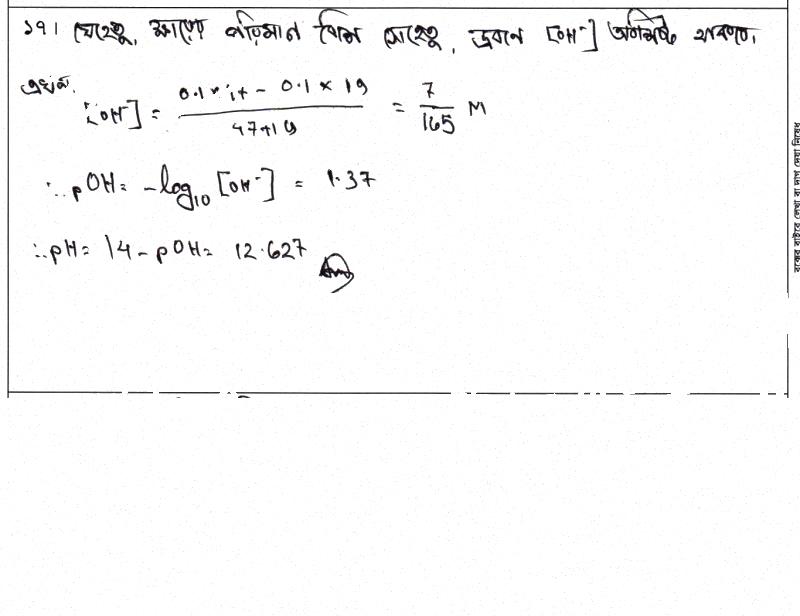 ১৭। যেহেতু, ক্ষারের পরিমান বেশি সেহেতু, দ্রবনে [OH⁻] অবশিষ্ট থাকবে।
এখন,
[OH⁻] = (0.1 × 47 - 0.1 × 19) / (47+19) = 7/165 M
∴ pOH = -log₁₀ [OH⁻] = 1.37
∴ pH = 14 - pOH = 12.627
(Ans)
বক্সের বাইরে লেখা বা দাগ দেয়া নিষেধ